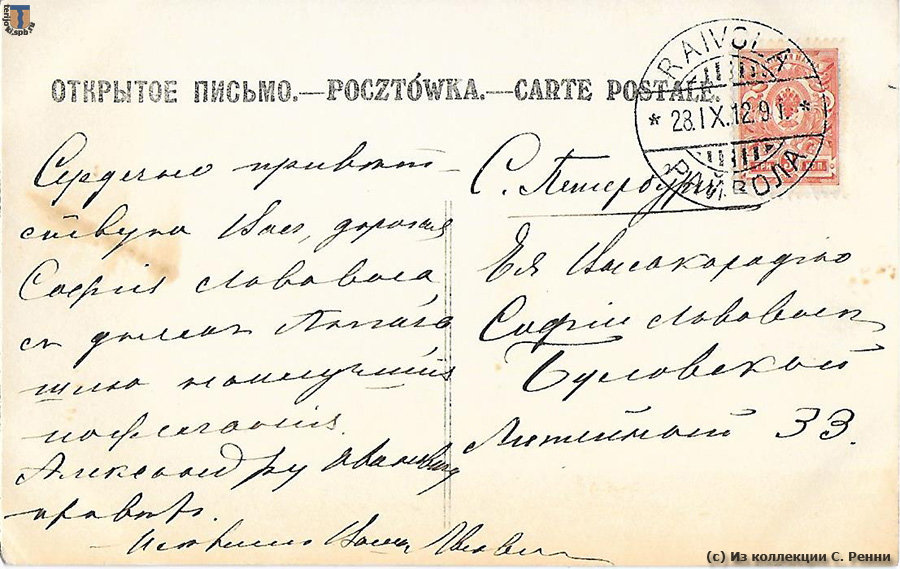 terijoki.spb.ru
ОТКРЫТОЕ ПИСЬМО.—POCZTÓWKA.—CARTE POSTALE.
RAIVOLA
* 28.IX.12.9 I. *
РАЙВОЛА
КОП.
Сердечно привѣт-
ствую Васъ, дорогая
Софія Львовна,
съ днемъ
шлю наилучшія
пожеланія.
Александру Ивановичу
привѣтъ.
Искренно Ваша
С. Петербургъ
Ея Высокородію
Софіи Львовнѣ
Бутовской
Литейный 33.
(c) Из коллекции С. Ренни